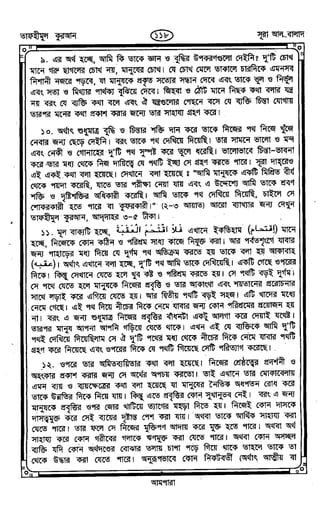 তাফহীমুল কুরআন
১১৮
সূরা আল-বালাদ
৯. এর অর্থ হচ্ছে, আমি কি তাকে জ্ঞান ও বুদ্ধির উপকরণগুলো দেইনি? দু'টি চোখ
মানে গরু ছাগলের চোখ নয়, মানুষের চোখ। যে চোখ মেলে তাকালে চারদিকে এমনসব
নিশানী নজরে পড়বে, যা মানুষকে প্রকৃত সত্যের সন্ধান দেবে এবং তাকে ভুল ও নির্ভুল
এবং সত্য ও মিথ্যার পার্থক্য বুঝিয়ে দেবে। জিহ্বা ও ঠোঁট মানে নিছক কথা বলার যন্ত্র
নয় বরং যে ব্যক্তি কথা বলে এবং ঐ যন্ত্রগুলোর পেছনে বসে যে ব্যক্তি চিন্তা যোগায়
তারপর মনের কথা প্রকাশ করার জন্য তার সাহায্য গ্রহণ করে।
১০. অর্থাৎ শুধুমাত্র বুদ্ধি ও চিন্তার শক্তি দান করে তাকে নিজের পথ নিজে খুঁজে
নেবার জন্য ছেড়ে দেইনি। বরং তাকে পথ দেখিয়ে দিয়েছি। তার সামনে ভালো ও মন্দ
এবং নেকী ও গোনাহের দু'টি পথ সুস্পষ্ট করে তুলে ধরেছি। ভালোভাবে চিন্তা-ভাবনা
করে তার মধ্য থেকে নিজ দায়িত্বে যে পথটি ইচ্ছা সে গ্রহণ করতে পারে। সূরা দাহ্‌রেও
এই একই কথা বলা হয়েছে। সেখানে বলা হয়েছে : "আমি মানুষকে একটি মিশ্রিত বীর্য
থেকে পয়দা করেছি, যাতে তার পরীক্ষা নেয়া যায় এবং এ উদ্দেশ্যে আমি তাকে শ্রবণ
শক্তি ও দৃষ্টিশক্তির অধিকারী করেছি। আমি তাকে পথ দেখিয়ে দিয়েছি, চাইলে সে
শোকরকারী হতে পারে বা কুফরকারী।" (২-৩ আয়াত) আরো ব্যাখ্যার জন্য দেখুন
তাফহীমুল কুরআন, আদ্‌দাহর ৩-৫ টীকা।
১১. মূল বাক্যটি হচ্ছে, فَلَا اقْتَحَمَ الْعَقَبَةَ এখানে ইকতিহাম (اقتحام) মানে
হচ্ছে, নিজেকে কোন কঠিন ও পরিশ্রম সাধ্য কাজে নিযুক্ত করা। আর পর্বতশৃংগে যাবার
জন্য পাহাড়ের মধ্য দিয়ে যে দুর্গম পথ অতিক্রম করতে হয় তাকে বলা হয় আকাবাহ
(عقبه)। অর্থাৎ এখানে বলা হচ্ছে, দু'টি পথ আমি তাকে দেখিয়েছি। একটি গেছে ওপরের
দিকে। কিন্তু সেখানে যেতে হলে খুব কষ্ট ও পরিশ্রম করতে হয়। সে পথটি বড়ই দুর্গম।
সে পথে যেতে হলে মানুষকে নিজের প্রবৃত্তি ও তার আকাংখা এবং শয়তানের প্ররোচনার
সাথে লড়াই করে এগিয়ে যেতে হয়। আর দ্বিতীয় পথটি বড়ই সহজ। এটি খাদের মধ্যে
নেমে গেছে। এই পথ দিয়ে নীচের দিকে নেমে যাবার জন্য কোন পরিশ্রমের প্রয়োজন হয়
না। বরং এ জন্য শুধুমাত্র নিজের প্রবৃত্তির বাঁধনটা একটু আলগা করে দেয়াই যথেষ্ট।
তারপর মানুষ আপনা আপনি গড়িয়ে যেতে থাকে। এখন এই যে ব্যক্তিকে আমি দু'টি
পথই দেখিয়ে দিয়েছিলাম সে ঐ দু'টি পথের মধ্য থেকে নীচের দিকে নেমে যাবার পথটি
গ্রহণ করে নিয়েছে এবং ওপরের দিকে যে পথটি গিয়েছে সেটি পরিত্যাগ করেছে।
১২. ওপরে তার অমিতব্যয়িতার কথা বলা হয়েছে। নিজের শ্রেষ্ঠত্বের প্রদর্শনী ও
অহংকার প্রকাশ করার জন্য সে অর্থের অপচয় করতো। তাই এখানে তার মোকাবেলায়
এমন ব্যয় ও ব্যয়ক্ষেত্রের কথা বলা হয়েছে যা মানুষের নৈতিক অধপতন রোধ করে
তাকে উন্নতির দিকে নিয়ে যায়। কিন্তু এতে প্রবৃত্তির কোন সুখানুভব নেই। বরং এ জন্য
মানুষকে প্রবৃত্তির ওপর জোর খাটিয়ে ত্যাগের মহড়া দিতে হয়। নিজেই কোন দাসকে
দাসত্বমুক্ত করে সেই ব্যয়ের দৃষ্টান্ত পেশ করা যায়। অথবা তাকে আর্থিক সাহায্য করা
যেতে পারে। তার ফলে সে নিজের মুক্তিপণ আদায় করে মুক্ত হতে পারে। অথবা অর্থ
সাহায্য করে কোন গরীবের গলাকে ঋণমুক্ত করা যেতে পারে। অথবা কোন অসচ্ছল
ব্যক্তি যদি কোন অর্থদণ্ডের বোঝার তলায় চাপা পড়ে গিয়ে থাকে তাহলে তাকে তা
থেকে উদ্ধার করা যেতে পারে। অনুরূপভাবে কোন নিকটবর্তী (অর্থাৎ আত্মীয় বা
আমপারা